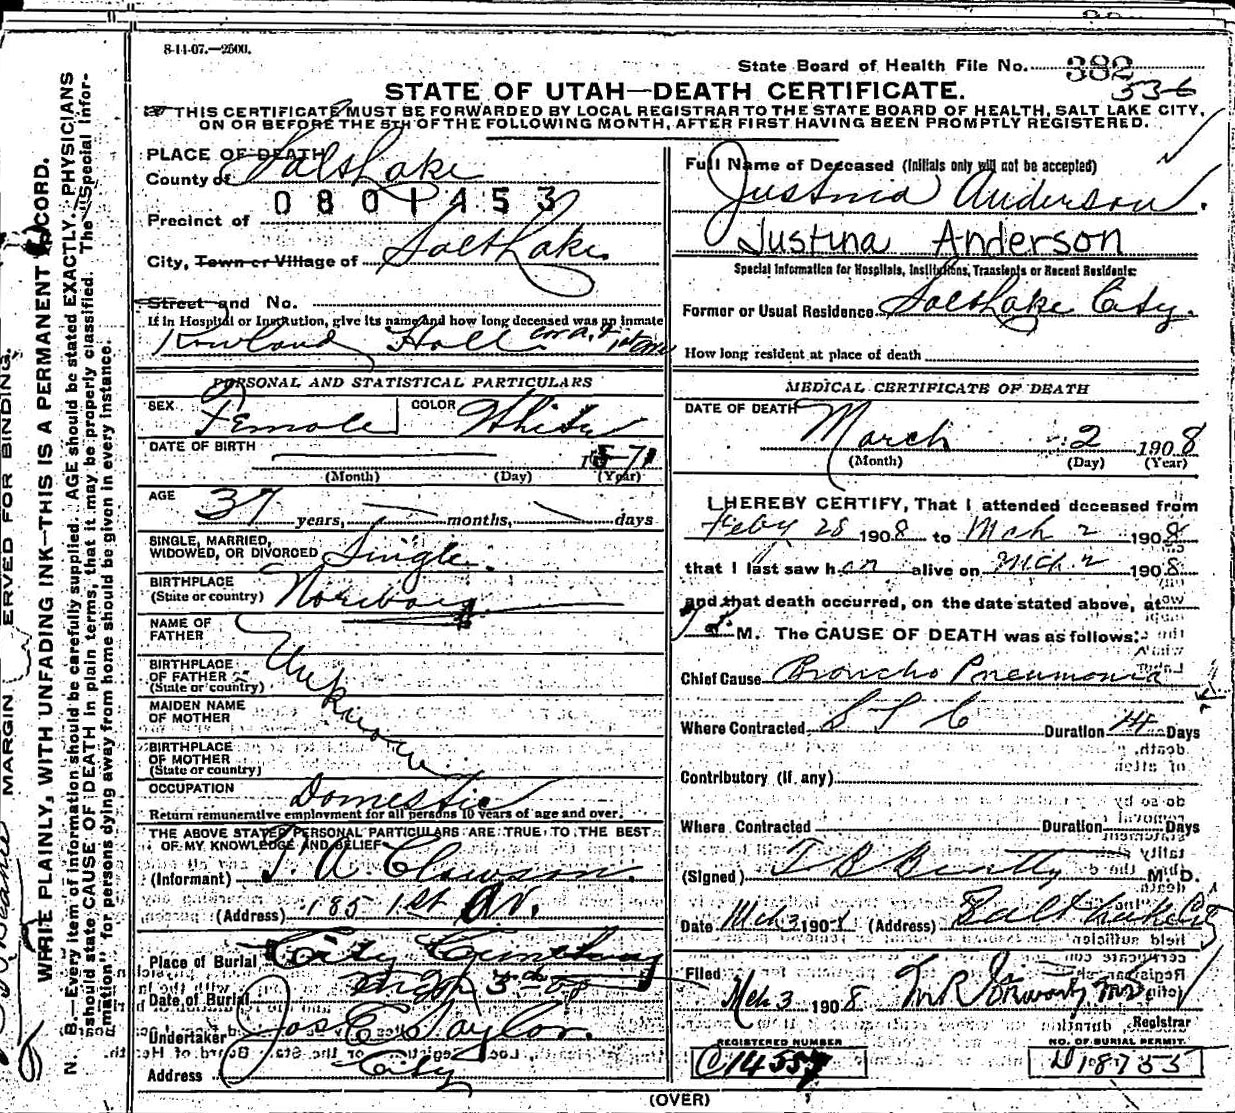 8-11-07.—2500.
State Board of Health File No. 382
536
STATE OF UTAH—DEATH CERTIFICATE.
THIS CERTIFICATE MUST BE FORWARDED BY LOCAL REGISTRAR TO THE STATE BOARD OF HEALTH, SALT LAKE CITY,
ON OR BEFORE THE 5TH OF THE FOLLOWING MONTH, AFTER FIRST HAVING BEEN PROMPTLY REGISTERED.
PLACE OF DEATH
County of Salt Lake
0801453
Precinct of
City, Town or Village of Salt Lake
Street and No.
If in Hospital or Institution, give its name and how long deceased was an inmate
Rowland Hall
PERSONAL AND STATISTICAL PARTICULARS
SEX Female COLOR White
DATE OF BIRTH
(Month) (Day) (Year)
AGE 37 years, months, days
SINGLE, MARRIED,
WIDOWED, OR DIVORCED Single.
BIRTHPLACE
(State or country)
NAME OF
FATHER
BIRTHPLACE
OF FATHER
(State or country)
Unknown
MAIDEN NAME
OF MOTHER
BIRTHPLACE
OF MOTHER
(State or country)
OCCUPATION
Domestic
Return remunerative employment for all persons 10 years of age and over.
THE ABOVE STATED PERSONAL PARTICULARS ARE TRUE TO THE BEST
OF MY KNOWLEDGE AND BELIEF
(Informant) Clawson.
(Address) 185 1st Av.
Place of Burial City Cemetery
Date of Burial
Undertaker Jos E Taylor.
Address City
Full Name of Deceased (Initials only will not be accepted)
Justina Anderson.
Justina Anderson
Special Information for Hospitals, Institutions, Transients or Recent Residents:
Former or Usual Residence Salt Lake City.
How long resident at place of death
MEDICAL CERTIFICATE OF DEATH
DATE OF DEATH
March 2 1908
(Month) (Day) (Year)
I HEREBY CERTIFY, That I attended deceased from
Feby 28 1908 to Mch 2 1908
that I last saw her alive on Mch 2 1908
and that death occurred, on the date stated above, at
M. The CAUSE OF DEATH was as follows:
Chief Cause Broncho Pneumonia
Where Contracted S L C Duration 14 Days
Contributory (if any)
Where Contracted Duration Days
(Signed) T B Beatty M. D.
Date Mch 3 1908 (Address) Salt Lake City
Filed
Mch 3 1908
Registrar
REGISTERED NUMBER
C 14557
NO. OF BURIAL PERMIT.
D 18755
(OVER)
MARGIN RESERVED FOR BINDING.
WRITE PLAINLY, WITH UNFADING INK—THIS IS A PERMANENT RECORD.
N. B.—Every item of information should be carefully supplied. AGE should be stated EXACTLY. PHYSICIANS
should state CAUSE OF DEATH in plain terms, that it may be properly classified. The "Special Infor-
mation" for persons dying away from home should be given in every instance.